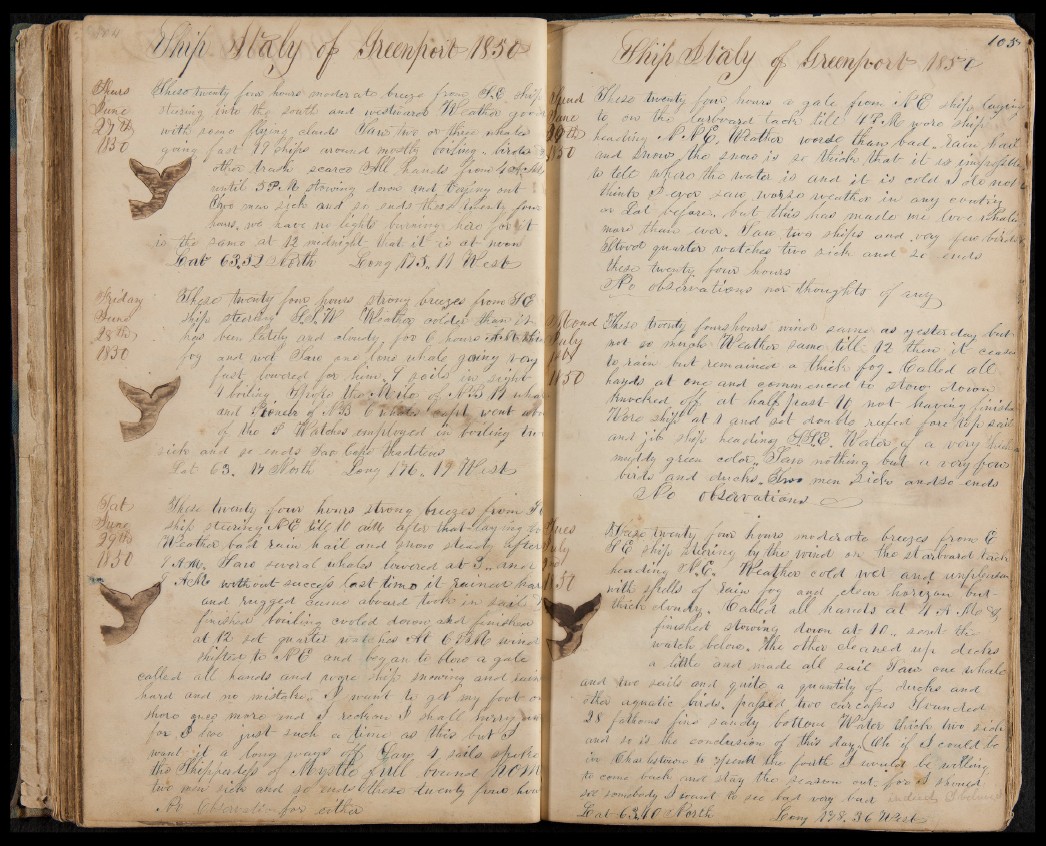 Ship Italy of Greenport 1850
Thurs
June
27th
1850
These twenty four hours moderate breeze from S.E. ship
steering into the south and westward Weather good
with some flying clouds Saw two or three whales
going fast 19 ships around mostly boiling birds
other trash scarce All hands from
until 5 P.M stowing down and
Two men sick and so ends these twenty four
hours, we have no lights burning here for it
is the same at 12 midnight that it is at noon
Lat 63.52 North Long 175.11 West
Friday
June
28th
1850
These twenty four hours strong breezes from S.E
ship steering S.S.W Weather colder than it
has been lately and cloudy for 6 hours
fog and wet Saw one lone whale going very
fast lowered for him, 9 sails in sight
1 boiling Spoke the Milo of N.B 11 whales
and of N B 6 whales capt went
of the Watches employed in boiling two
sick and so ends
Lat 63. 14 North Long 176. 19 West
Sat
June
29th
1850
These twenty four hours strong breezes from
ship steering N.E till 10 after that laying to
Weather bad rain hail and snow steady After
7 A.M. Saw several whales lowered at
without success lost time it rained hard
and rugged aboard took in sail
finished boiling cooled down and finished
at 12 set quarter watches At 6 P.M wind
shifted to N.E and began to blow a gale
called all hands and wore ship snowing and
hard and no mistake. I want to get my foot on
shore once more and I reckon I shall
for I love just such a time as this but I
want it a long ways off Saw 4 sails spoke
the Shepherdess of Mystic full bound home
two men sick and so ends these twenty four hours
No Observation for either
105
Ship Italy of Greenport 1850
Sund
June
30th
1850
These twenty four hours a gale from N.E ship laying
to on the larboard tack till 4 P.M wore ship
heading N.N.E. Weather worse than bad. Rain, hail
and snow, the snow is so thick that it is impossible
to tell where the water is and it is cold I do not
think I ever saw worse weather in any country
or Lat before, but this has made me love whaling
more than ever. Saw two ships and very few birds
Stood quarter watches two sick and so ends
these twenty four hours
No observations nor thoughts of any
Mond
July
1st
1850
These twenty four hours wind same as yesterday but
not so much Weather same till 12 then it ceased
to rain but remained a thick fog. Called all
hands at one and commenced to stow down
Knocked off at half past 10 not having finished
Wore ship at 1 and set double reefed fore top sail
and jib ship heading S.S.E. Water of a very thick
muddy green color. Saw nothing but a very few
birds and ducks. Two men sick and so ends
No observations
Tues
July
2nd
1850
These twenty four hours moderate breezes from E
S E ship steering by the wind on the starboard tack
heading N.E. Weather cold wet and unpleasant
with spells of rain fog and clear horizon but
thick cloudy. Called all hands at 4 A.M. &
finished stowing down at 10., sent the
watch below. The other cleaned up decks
a little and made all sail Saw one whale
and two sails and quite a quantity of ducks and
other aquatic birds. passed two carcasses Sounded
28 fathoms fine sandy bottom Water thick two sick
and so is the conclusion of this day. (Oh if I could be
in Charlestown to spend the fourth I would be willing
to come back and stay the season out for I should
see somebody I want to see bad very bad indeed
Lat 63.10 North Long 178.36 West